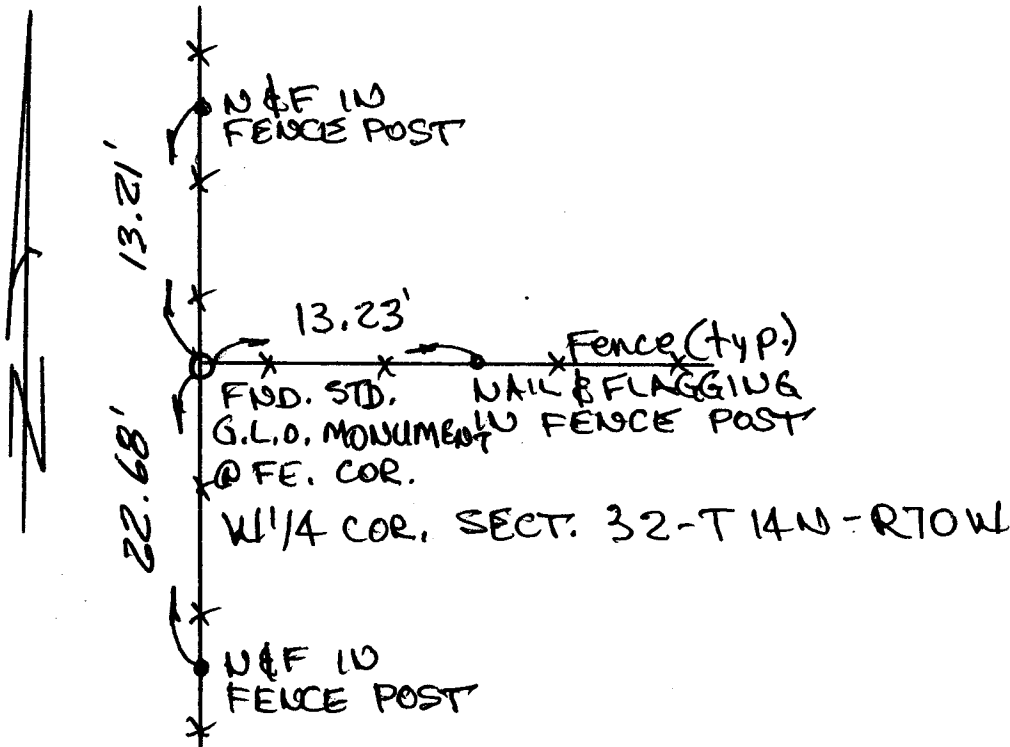 N & F IN
FENCE POST
13.21'
13.23'
Fence (typ.)
FND. STD.
G.L.O. MONUMENT
@ FE. COR.
NAIL & FLAGGING
IN FENCE POST
W 1/4 COR. SECT. 32-T14N-R70W
22.68'
N & F IN
FENCE POST
N